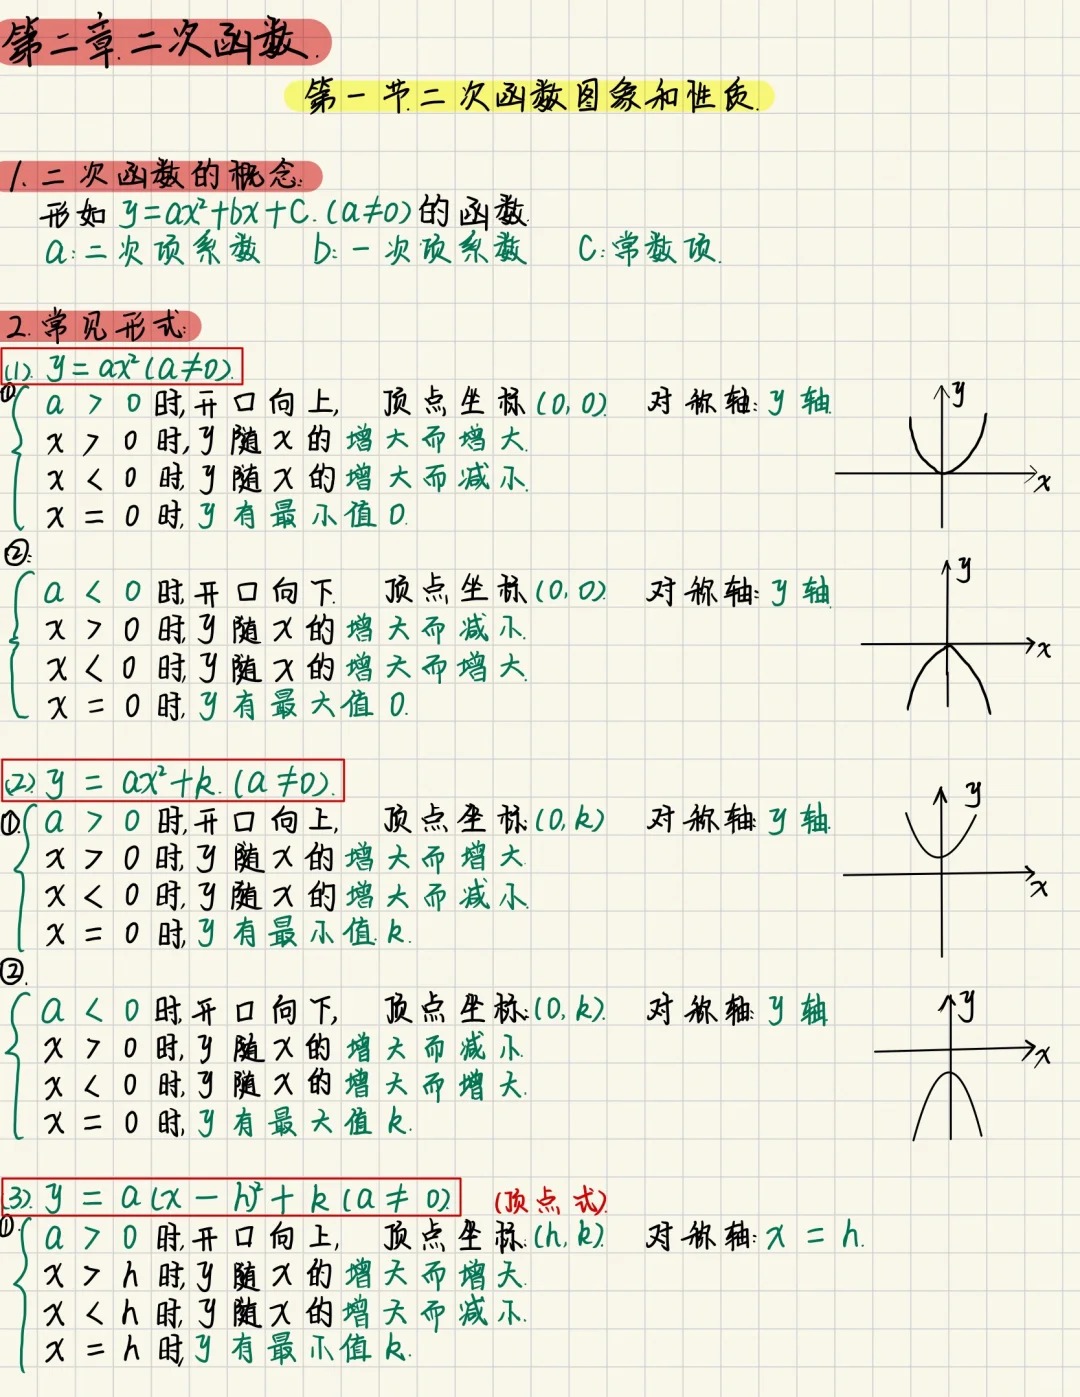 第二章.二次函数.
第一节.二次函数图象和性质.
1.二次函数的概念:
形如 y=ax²+bx+c.(a≠0)的函数.
a:二次项系数 b:一次项系数 c:常数项.
2.常见形式:
(1). y=ax²(a≠0).
① a > 0 时,开口向上, 顶点坐标(0,0). 对称轴:y轴.
x > 0 时,y随x的增大而增大.
x < 0 时,y随x的增大而减小.
x = 0 时,y有最小值0.
y
x
②.
a < 0 时,开口向下. 顶点坐标(0,0). 对称轴:y轴.
x > 0 时,y随x的增大而减小.
x < 0 时,y随x的增大而增大.
x = 0 时,y有最大值0.
y
x
(2). y = ax²+k.(a≠0).
① a > 0 时,开口向上, 顶点坐标:(0,k) 对称轴:y轴.
x > 0 时,y随x的增大而增大
x < 0 时,y随x的增大而减小.
x = 0 时,y有最小值k.
y
x
②.
a < 0 时,开口向下, 顶点坐标:(0,k). 对称轴:y轴
x > 0 时,y随x的增大而减小
x < 0 时,y随x的增大而增大.
x = 0 时,y有最大值k.
y
x
(3). y = a(x-h)²+k(a≠0). (顶点式).
① a > 0 时,开口向上, 顶点坐标:(h,k). 对称轴:x = h.
x > h 时,y随x的增大而增大.
x < h 时,y随x的增大而减小.
x = h 时,y有最小值k.